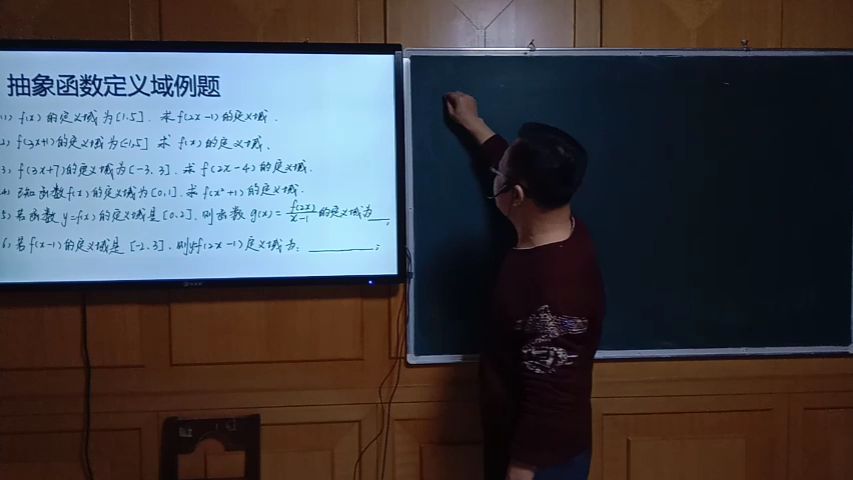 抽象函数定义域例题
(1) f(x)的定义域为[1.5]. 求f(2x-1)的定义域.
2) f(3x+1)的定义域为[-1,5] 求f(x)的定义域、
3, f(3x+7)的定义域为[-3, 3]. 求f(2x-4)的定义域.
4. 已知函数f(x)的定义域为[0,1]. 求f(x²+1)的定义域.
5) 若函数y=f(x)的定义域是[0,2]. 则函数g(x)=f(2x)/(x-1)的定义域为__;
6, 若f(x-1)的定义域是[-2,3]. 则y=f(2x-1)定义域为: ______;